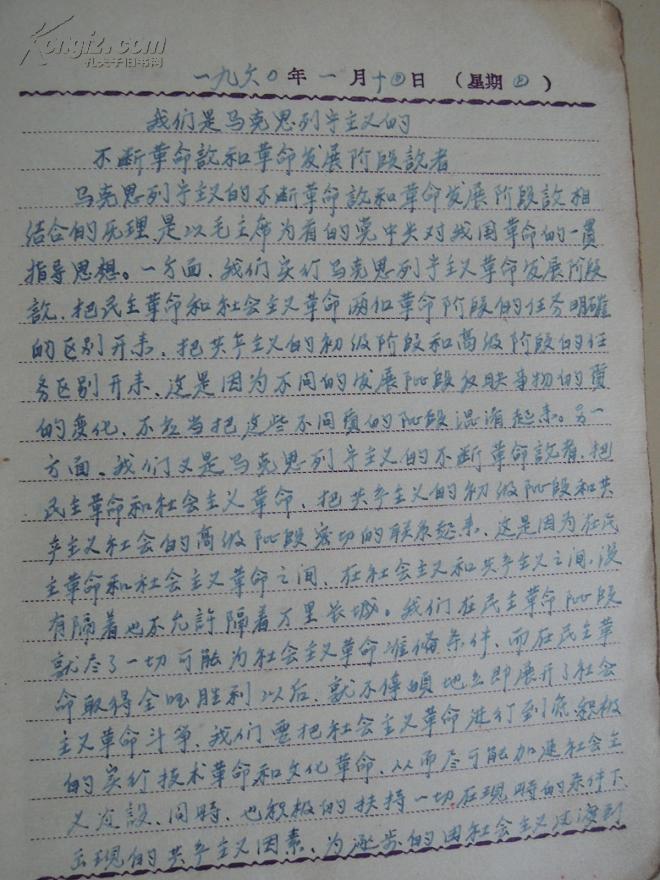 Kongfz.com
孔夫子旧书网
一九六〇年一月十四日（星期四）
我们是马克思列宁主义的
不断革命説和革命发展阶段説者
马克思列宁主义的不断革命説和革命发展阶段説相
结合的原理，是以毛主席为首的党中央对我国革命的一貫
指导思想。一方面、我们实行马克思列宁主义革命发展阶段
説、把民主革命和社会主义革命两个革命阶段的任务明确
的区别开来、把共产主义的初级阶段和高级阶段的任
务区别开来、这是因为不同的发展阶段反映事物的质
的变化、不应当把这些不同质的阶段混淆起来。另一
方面、我们又是马克思列宁主义的不断革命説者、把
民主革命和社会主义革命、把共产主义的初级阶段和共
产主义社会的高级阶段密切的联系起来、这是因为在民
主革命和社会主义革命之间、在社会主义和共产主义之间、没
有隔着也不允許隔着万里长城。我们在民主革命阶段
就尽了一切可能为社会主义革命准备条件、而在民主革
命取得全国胜利以后、就不停頓地立即展开了社会
主义革命斗争、我们要把社会主义革命进行到底积极
的实行技术革命和文化革命、从而尽可能加速社会主
义建設、同時、也积极的扶持一切在現時的条件下
出现的共产主义因素、为逐步的由社会主义过渡到